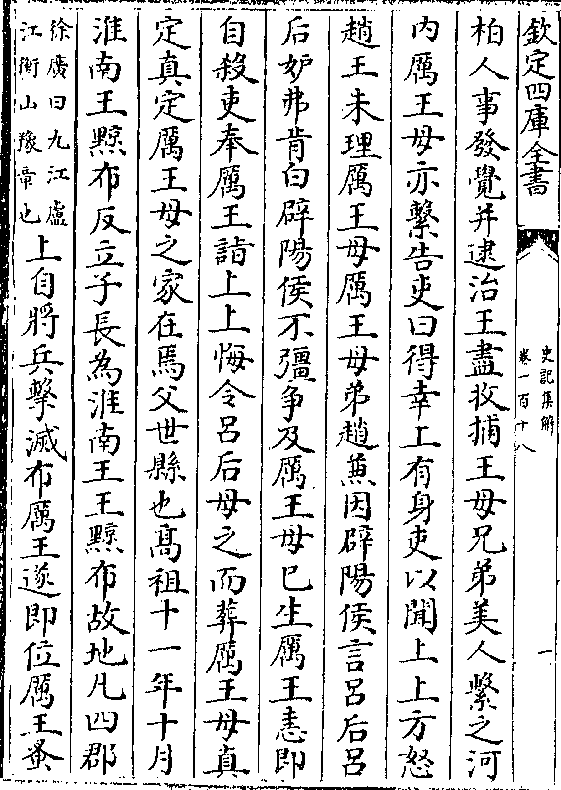 欽定四庫全書
史記集解
卷一百十八
一
柏人事發覺并逮治王盡收捕王母兄弟美人繫之河
内厲王母亦繫告吏曰得幸上有身吏以聞上上方怒
趙王未理厲王母厲王母弟趙蒹因辟陽侯言吕后吕
后妒弗肯白辟陽侯不彊争及厲王母已生厲王恚即
自殺吏奉厲王詣上上悔令吕后母之而葬厲王母真
定真定厲王母之家在焉父世縣也高祖十一年十月
淮南王黥布反立子長為淮南王王黥布故地凡四郡
徐廣曰九江廬
江衡山豫章也
上自將兵擊滅布厲王遂即位厲王蚤